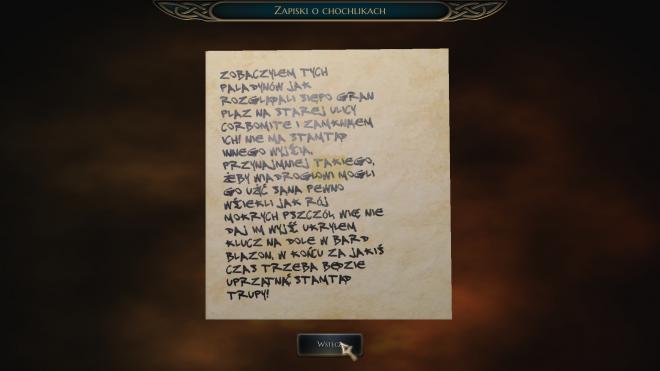 Zapiski o chochlikach
ZOBACZYŁEM TYCH
PALADYNÓW JAK
ROZGLĄDALI SIĘPO GRAN
PLAZ NA STAREJ ULICY
CORBOMITE I ZAMKNĄŁEM
ICH! NIE MA STAMTĄD
INNEGO WYJŚCIA,
PRZYNAJMNIEJ TAKIEGO,
ŻEBY WIADROGŁOWI MOGLI
GO UŻYĆ SĄNA PEWNO
WŚCIEKLI JAK RÓJ
MOKRYCH PSZCZÓŁ, WIĘC NIE
DAJ IM WYJŚĆ UKRYŁEM
KLUCZ NA DOLE W BARD
BLAZON. W KOŃCU ZA JAKIŚ
CZAS TRZEBA BĘDZIE
UPRZĄTNĄĆ STAMTĄD
TRUPY!
Wstecz